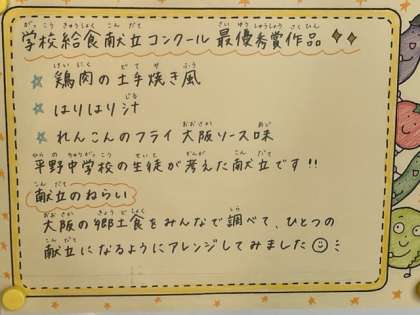 学校給食献立コンクール 最優秀賞作品
鶏肉の土手焼き風
はりはり汁
れんこんのフライ 大阪ソース味
平野中学校の生徒が考えた献立です!!
献立のねらい
大阪の郷土食をみんなで調べて、ひとつの
献立になるようにアレンジしてみました